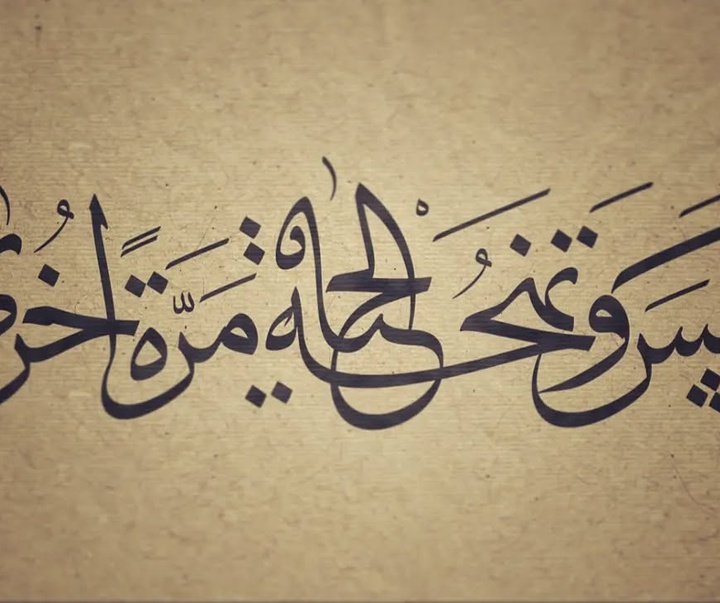 وَتَمنَحُ الحْياةَ مَرَّةً أُخرى